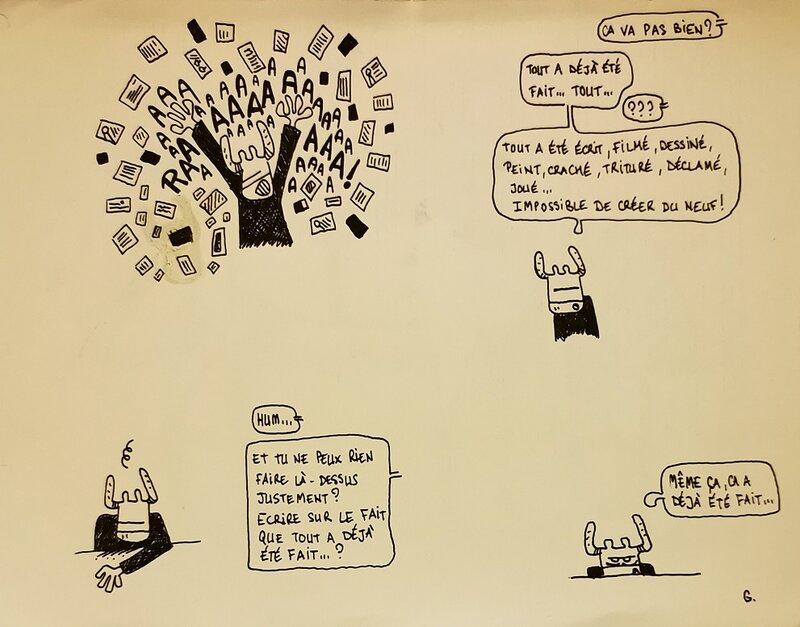 RAAAAAAAAAAAAAAAAA!
ÇA VA PAS BIEN?
TOUT A DÉJÀ ÉTÉ
FAIT... TOUT...
???
TOUT A ÉTÉ ÉCRIT, FILMÉ, DESSINÉ,
PEINT, CRACHÉ, TRITURÉ, DÉCLAMÉ,
JOUÉ...
IMPOSSIBLE DE CRÉER DU NEUF!
HUM...
ET TU NE PEUX RIEN
FAIRE LÀ-DESSUS
JUSTEMENT?
ECRIRE SUR LE FAIT
QUE TOUT A DÉJÀ
ÉTÉ FAIT...?
MÊME ÇA, ÇA A
DÉJÀ ÉTÉ FAIT...
G.